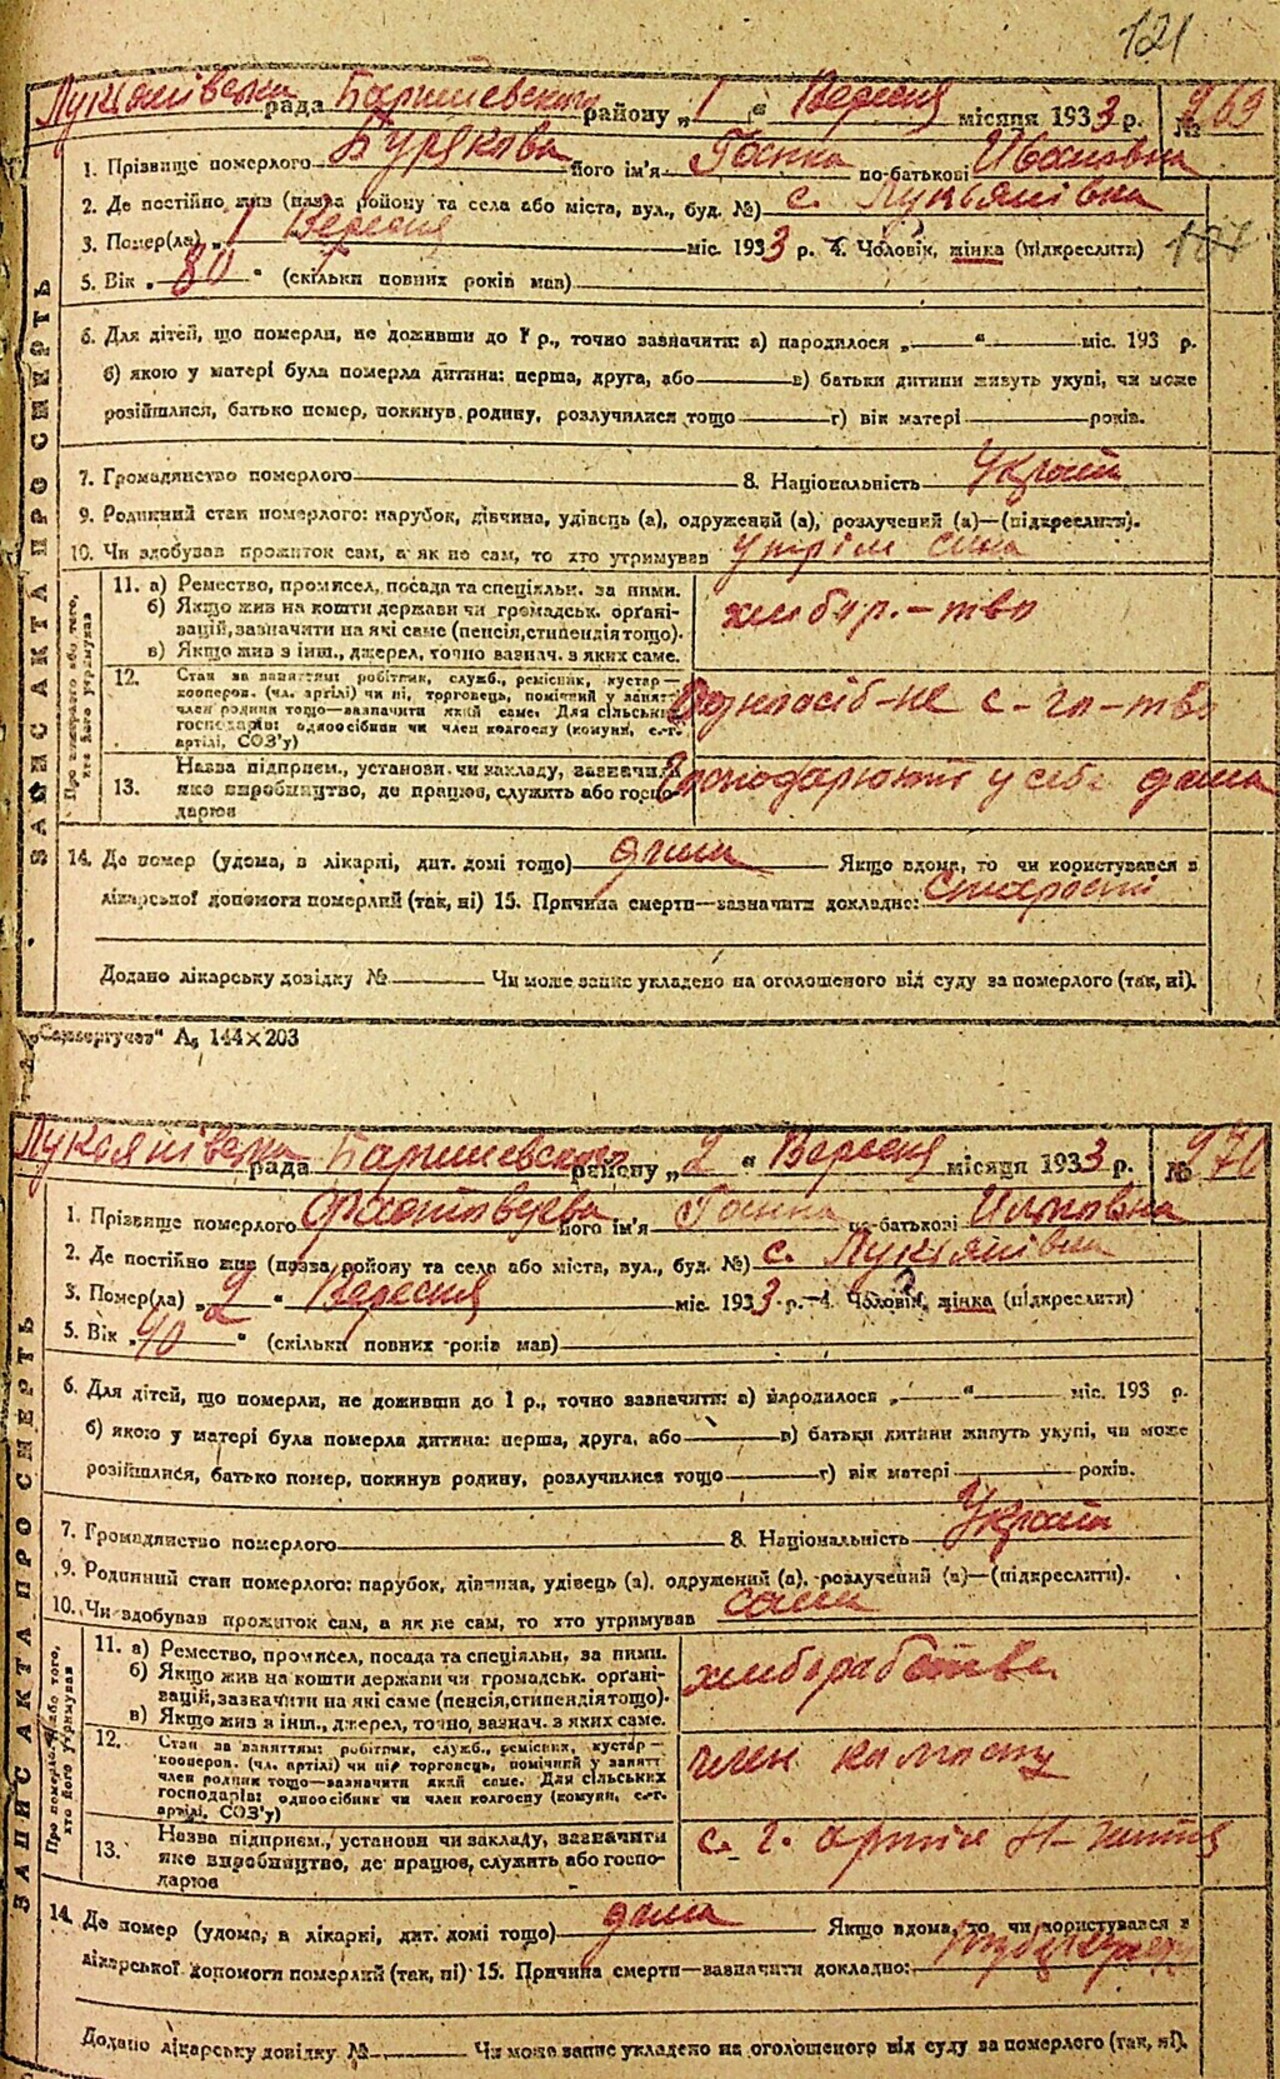 121
Лукянівська рада Баришевського району „1" Вересня місяця 1933 р. № 969
1. Прізвище померлого Бурякова його ім'я Ганна по-батькові Ивановна
2. Де постійно жив (назва району та села або міста, вул., буд. №) с. Лукьянівка
3. Помер(ла) „1 Вересня міс. 1933 р. 4. Чоловік, жінка (підкреслити)
5. Вік „80" (скільки повних років мав)
6. Для дітей, що померли, не доживши до 1 р., точно зазначити: а) народилося „ " міс. 193 р.
б) якою у матері була померла дитина: перша, друга, або в) батьки дитини живуть укупі, чи може
розійшлися, батько помер, покинув родину, розлучилися тощо г) вік матері років.
7. Громадянство померлого 8. Національність Україн
9. Родинний стан померлого: парубок, дівчина, удівець (а), одружений (а), розлучений (а)—(підкреслити).
10. Чи здобував прожиток сам, а як не сам, то хто утримував сина
ЗАПИС АКТА ПРО СМЕРТЬ
Про померлого або того, хто його утримував
11. а) Ремество, промисел, посада та спеціяльн. за ними.
б) Якщо жив на кошти держави чи громадськ. орґані-
зацій, зазначити на які саме (пенсія, стипендія тощо).
в) Якщо жив з інш., джерел, точно зазнач. з яких саме.
хлібор.-тво
12. Стан за заняттям: робітник, служб., ремісник, кустар—
кооперов. (чл. артілі) чи ні, торговець, помічний у занятт
член родини тощо—зазначити який саме. Для сільських
господарів: одноосібник чи член колгоспу (комуни, с.-г.
артілі, СОЗ'у)
Одноосіб-не с-го-тво
13. Назва підприєм., установи чи закладу, зазначити
яке виробництво, де працює, служить або госпо-
дарює
Господарюют у себе дома
14. Де помер (удома, в лікарні, дит. домі тощо) дома Якщо вдома, то чи користувався з
лікарської допомоги померлий (так, ні) 15. Причина смерти—зазначити докладно: Старости
Додано лікарську довідку № Чи може запис укладено на оголошеного від суду за померлого (так, ні).
А₅ 144×203
Лукоянівська рада Баришевського району „2" Вересня місяця 1933 р. № 970
1. Прізвище померлого його ім'я Ганна по-батькові
2. Де постійно жив (назва району та села або міста, вул., буд. №) с. Лукьянівка
3. Помер(ла) „2" Вересня міс. 1933 р. 4. Чоловік, жінка (підкреслити)
5. Вік „40" (скільки повних років мав)
6. Для дітей, що померли, не доживши до 1 р., точно зазначити: а) народилося „ " міс. 193 р.
б) якою у матері була померла дитина: перша, друга, або в) батьки дитини живуть укупі, чи може
розійшлися, батько помер, покинув родину, розлучилися тощо г) вік матері років.
7. Громадянство померлого 8. Національність Україн
9. Родинний стан померлого: парубок, дівчина, удівець (а), одружений (а), розлучений (а)—(підкреслити).
10. Чи здобував прожиток сам, а як не сам, то хто утримував сама
ЗАПИС АКТА ПРО СМЕРТЬ
Про померлого або того, хто його утримував
11. а) Ремество, промисел, посада та спеціяльн. за ними.
б) Якщо жив на кошти держави чи громадськ. орґані-
зацій, зазначити на які саме (пенсія, стипендія тощо).
в) Якщо жив з інш., джерел, точно зазнач. з яких саме.
хлиборабство
12. Стан за заняттям: робітник, служб., ремісник, кустар—
кооперов. (чл. артілі) чи ні, торговець, помічний у занятт
член родини тощо—зазначити який саме. Для сільських
господарів: одноосібник чи член колгоспу (комуни, с.-г.
артілі, СОЗ'у)
член колгоспу
13. Назва підприєм., установи чи закладу, зазначити
яке виробництво, де працює, служить або госпо-
дарює
с. г. артіль Н-життя
14. Де помер (удома, в лікарні, дит. домі тощо) дома Якщо вдома, то чи користувався з
лікарської допомоги померлий (так, ні) 15. Причина смерти—зазначити докладно:
Додано лікарську довідку № Чи може запис укладено на оголошеного від суду за померлого (так, ні).